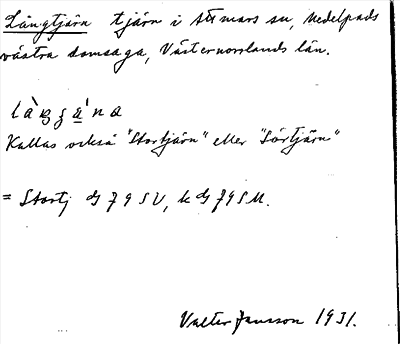 Långtjärn tjärn i Attmars sn, Medelpads
västra domsaga, Västernorrlands län.
Kallas också "Stortjärn" eller "Sörtjärn"
= Stortj dj 79 SV, k dj 79 SM.
Valter Jansson 1931.